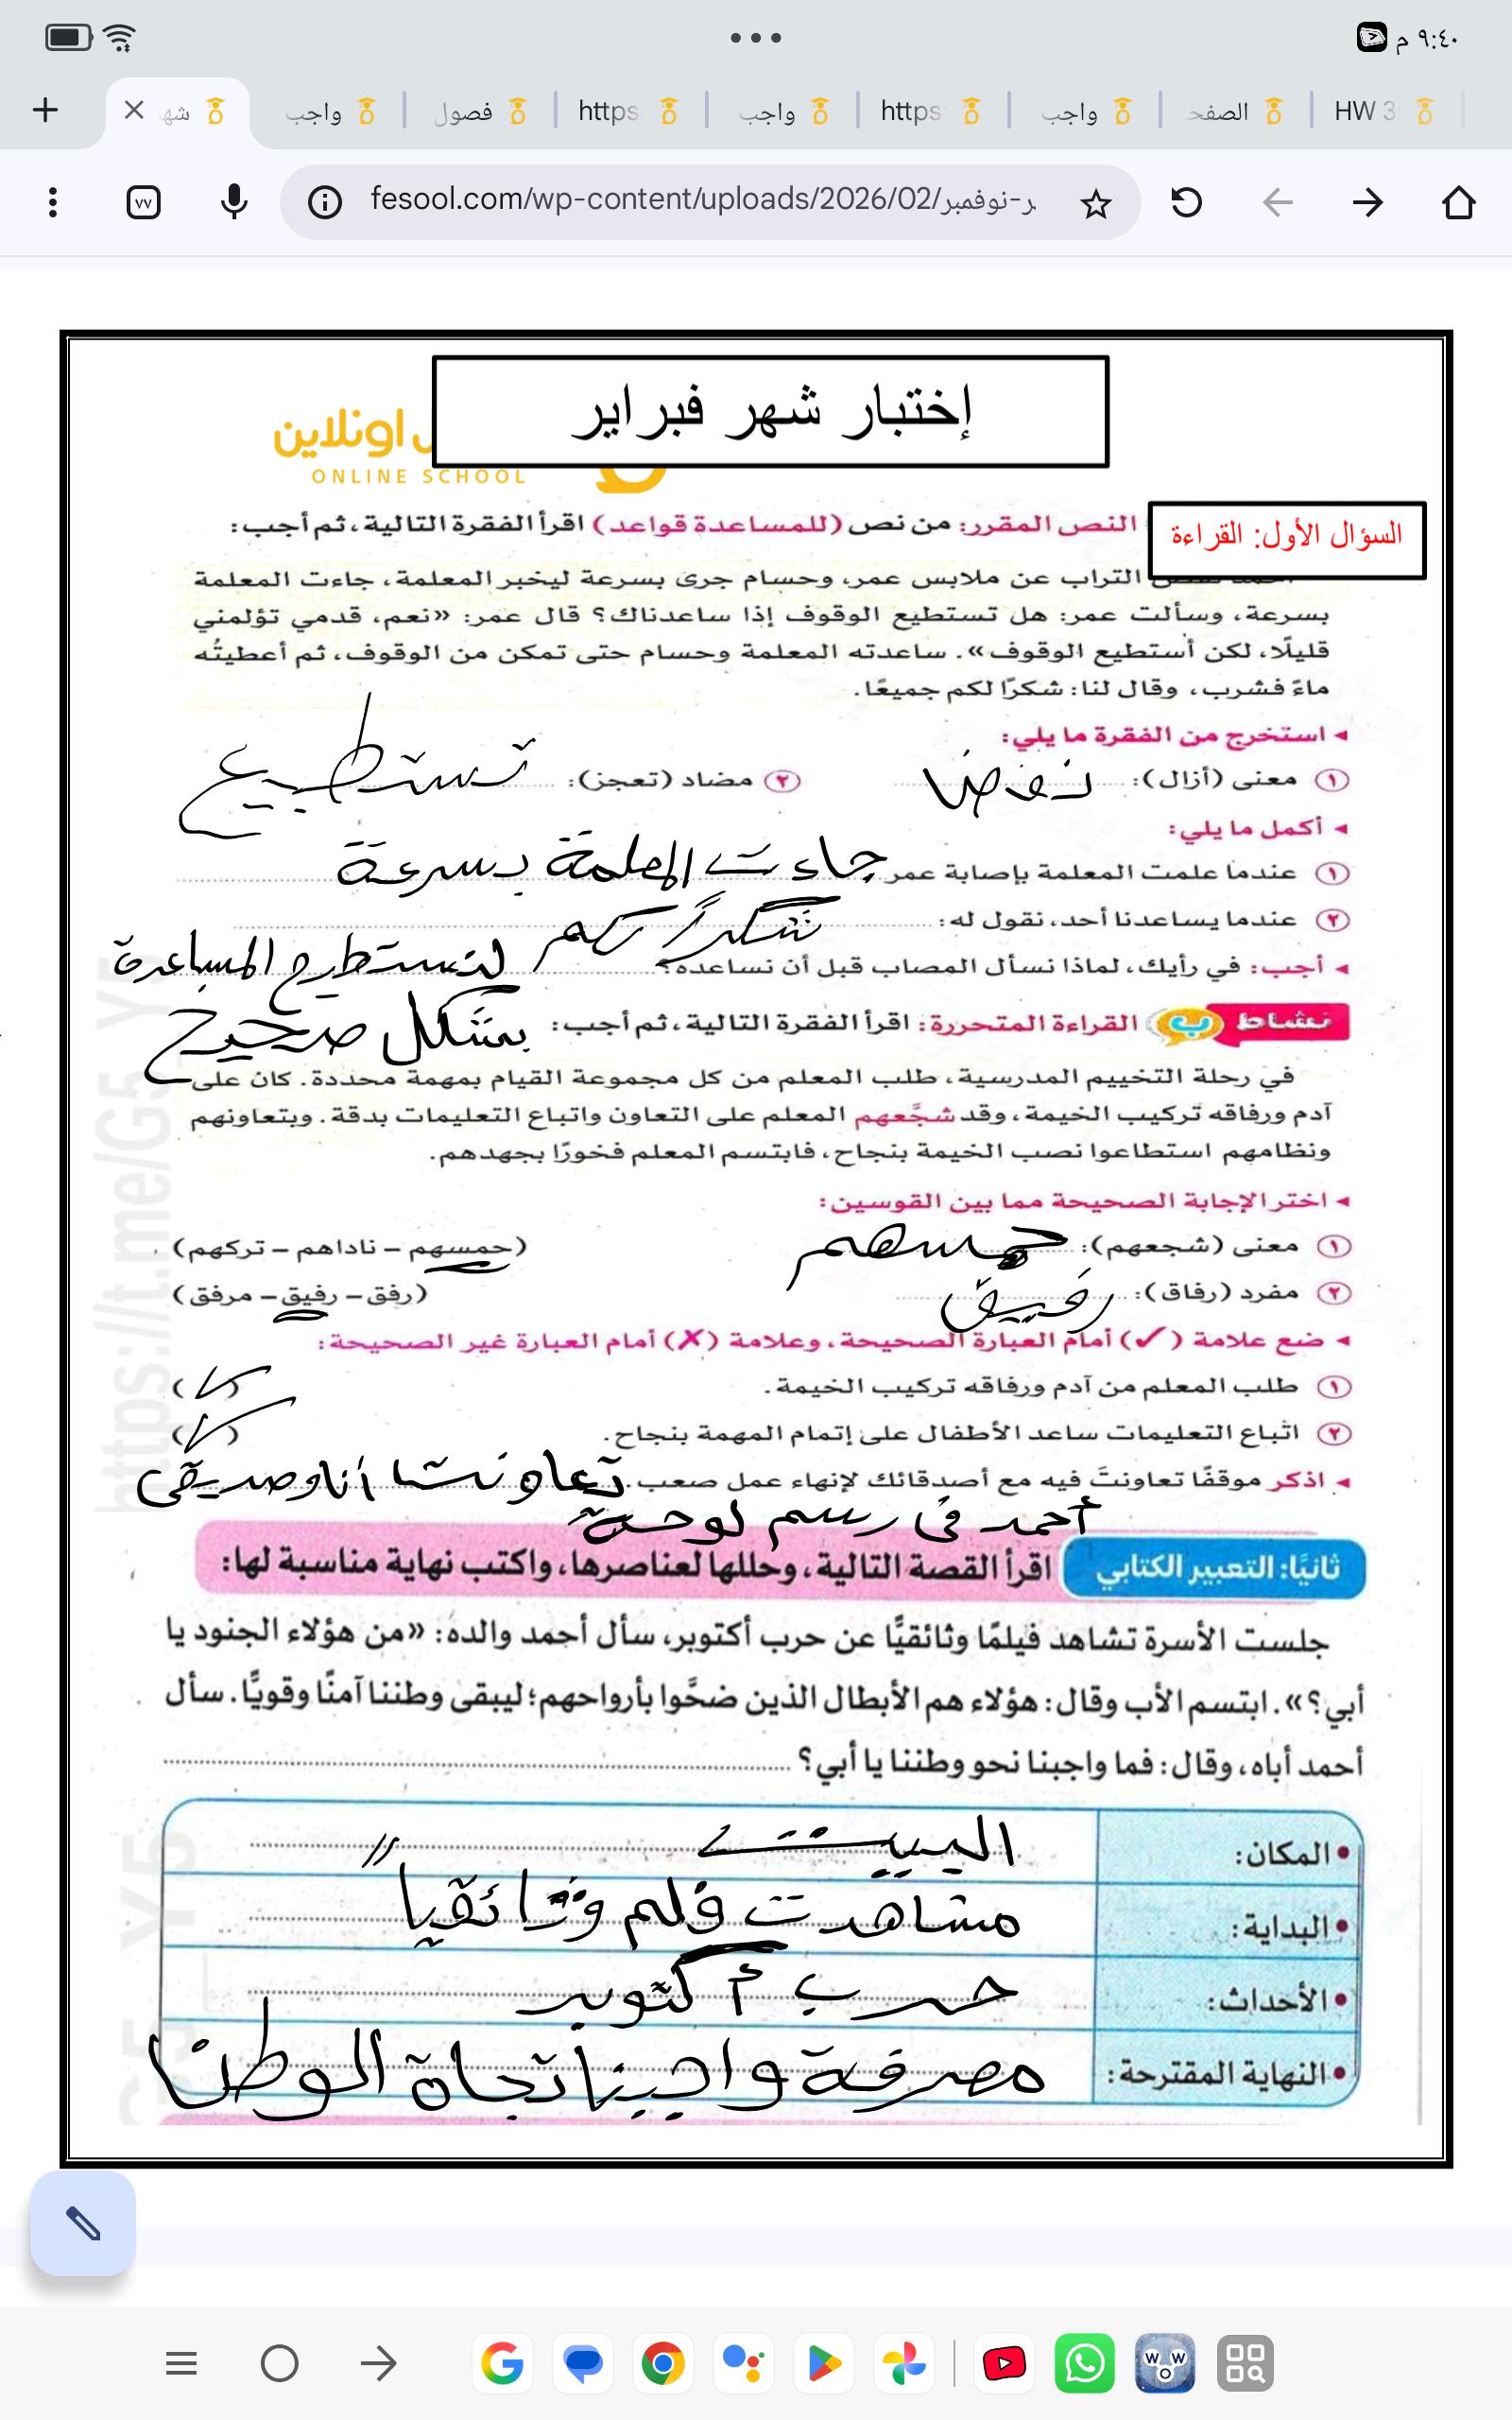 ٩:٤٠ م
شهـ
واجب
فصول
https
واجب
https
واجب
الصفحـ
HW 3
fesool.com/wp-content/uploads/2026/02/ر-نوفمبر-
إختبار شهر فبراير
اونلاين
ONLINE SCHOOL
السؤال الأول: القراءة
النص المقرر: من نص (للمساعدة قواعد) اقرأ الفقرة التالية، ثم أجب:
التراب عن ملابس عمر، وحسام جرى بسرعة ليخبر المعلمة، جاءت المعلمة
بسرعة، وسألت عمر: هل تستطيع الوقوف إذا ساعدناك؟ قال عمر: «نعم، قدمي تؤلمني
قليلًا، لكن أستطيع الوقوف». ساعدته المعلمة وحسام حتى تمكن من الوقوف، ثم أعطيتُه
ماءً فشرب، وقال لنا: شكرًا لكم جميعًا.
◂ استخرج من الفقرة ما يلي:
١ معنى (أزال): نفض ٢ مضاد (تعجز): تستطيع
◂ أكمل ما يلي:
١ عندما علمت المعلمة بإصابة عمر جاءت المعلمة بسرعة
٢ عندما يساعدنا أحد، نقول له: شكراً لكم
◂ أجب: في رأيك، لماذا نسأل المصاب قبل أن نساعده؟ لنستطيع المساعدة
بشكل صحيح
نشاط ب القراءة المتحررة: اقرأ الفقرة التالية، ثم أجب:
في رحلة التخييم المدرسية، طلب المعلم من كل مجموعة القيام بمهمة محددة. كان على
آدم ورفاقه تركيب الخيمة، وقد شجَّعهم المعلم على التعاون واتباع التعليمات بدقة. وبتعاونهم
ونظامهم استطاعوا نصب الخيمة بنجاح، فابتسم المعلم فخورًا بجهدهم.
◂ اختر الإجابة الصحيحة مما بين القوسين:
١ معنى (شجعهم): حمسهم (حمسهم – ناداهم – تركهم).
٢ مفرد (رفاق): رفيق (رفق – رفيق – مرفق)
◂ ضع علامة (✓) أمام العبارة الصحيحة، وعلامة (✗) أمام العبارة غير الصحيحة:
١ طلب المعلم من آدم ورفاقه تركيب الخيمة. (✓)
٢ اتباع التعليمات ساعد الأطفال على إتمام المهمة بنجاح. (✓)
◂ اذكر موقفًا تعاونتَ فيه مع أصدقائك لإنهاء عمل صعب. تعاونت أنا وصديقى
أحمد فى رسم لوحة
ثانيًا: التعبير الكتابي اقرأ القصة التالية، وحللها لعناصرها، واكتب نهاية مناسبة لها:
جلست الأسرة تشاهد فيلمًا وثائقيًّا عن حرب أكتوبر، سأل أحمد والده: «من هؤلاء الجنود يا
أبي؟». ابتسم الأب وقال: هؤلاء هم الأبطال الذين ضحَّوا بأرواحهم؛ ليبقى وطننا آمنًا وقويًّا. سأل
أحمد أباه، وقال: فما واجبنا نحو وطننا يا أبي؟
• المكان: البيت
• البداية: مشاهدت فلم وثائقياً
• الأحداث: حرب أكتوبر
• النهاية المقترحة: معرفة واجبنا تجاة الوطن
https://t.me/G5_Y5